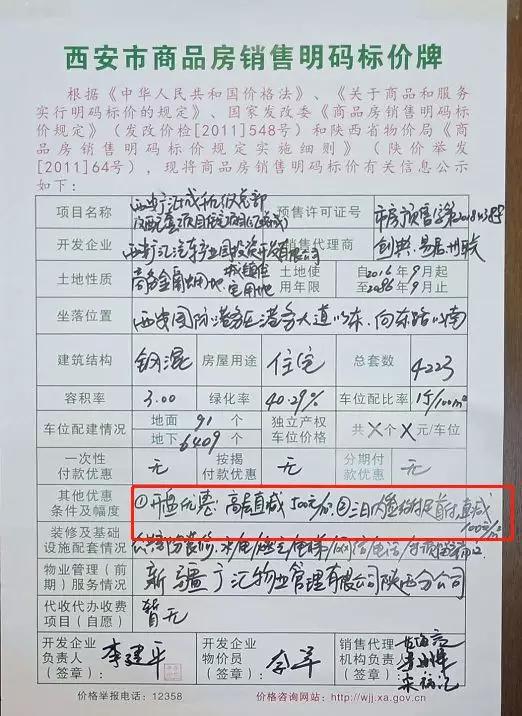 西安市商品房销售明码标价牌
根据《中华人民共和国价格法》、《关于商品和服务
实行明码标价的规定》、国家发改委《商品房销售明码标
价规定》（发改价检[2011]548号）和陕西省物价局《商
品房销售明码标价规定实施细则》（陕价举发
[2011]64号），现将商品房销售明码标价有关信息公示
如下：
项目名称 西安广汇 预售许可证号 市房预售字第2018
开发企业 西安广汇汽车产业园投资开发有限公司 销售代理商 创典、易居
土地性质 商务金融用地 城镇住宅用地 土地使用年限 自2016年9月起至2086年9月止
坐落位置 西安国际港务区港务大道以东，向东路以南
建筑结构 钢混 房屋用途 住宅 总套数 4223
容积率 3.00 绿化率 40.29% 车位配比率 1个/100m²
车位配建情况 地面 91 个 地下 6409 个 独立产权车位价格 共X个X元/车位
一次性付款优惠 无 按揭付款优惠 无 分期付款优惠 无
其他优惠条件及幅度 ①开盘优惠：高层直减500元/ ②三日内 首付，直减100元/m²
装修及基础设施配套情况 公共部分装修，水/电/
物业管理（前期）服务情况 新疆广汇物业管理有限公司陕西分公司
代收代办收费项目（自愿） 暂无
开发企业负责人（签章）： 李建平 开发企业物价员（签章）： 销售代理机构负责人（签章）：
价格举报电话：12358 价格咨询网站：http://wjj.xa.gov.cn